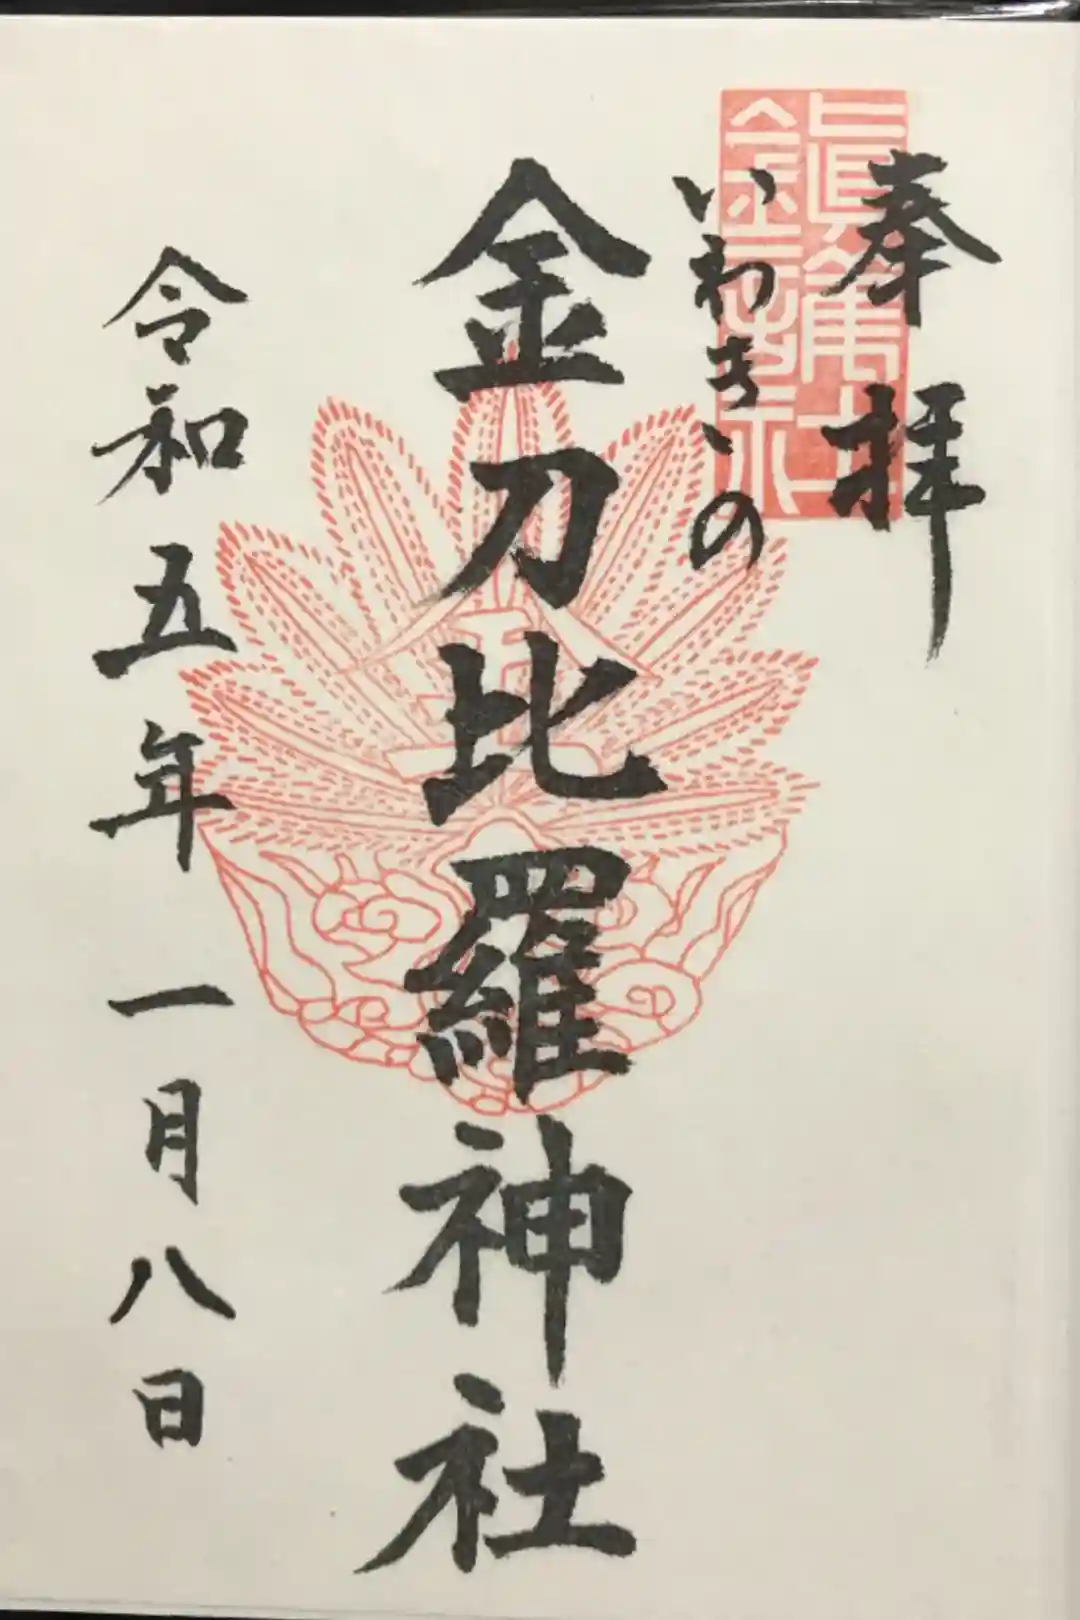 奉拝
いわきの
金刀比羅神社
令和五年一月八日